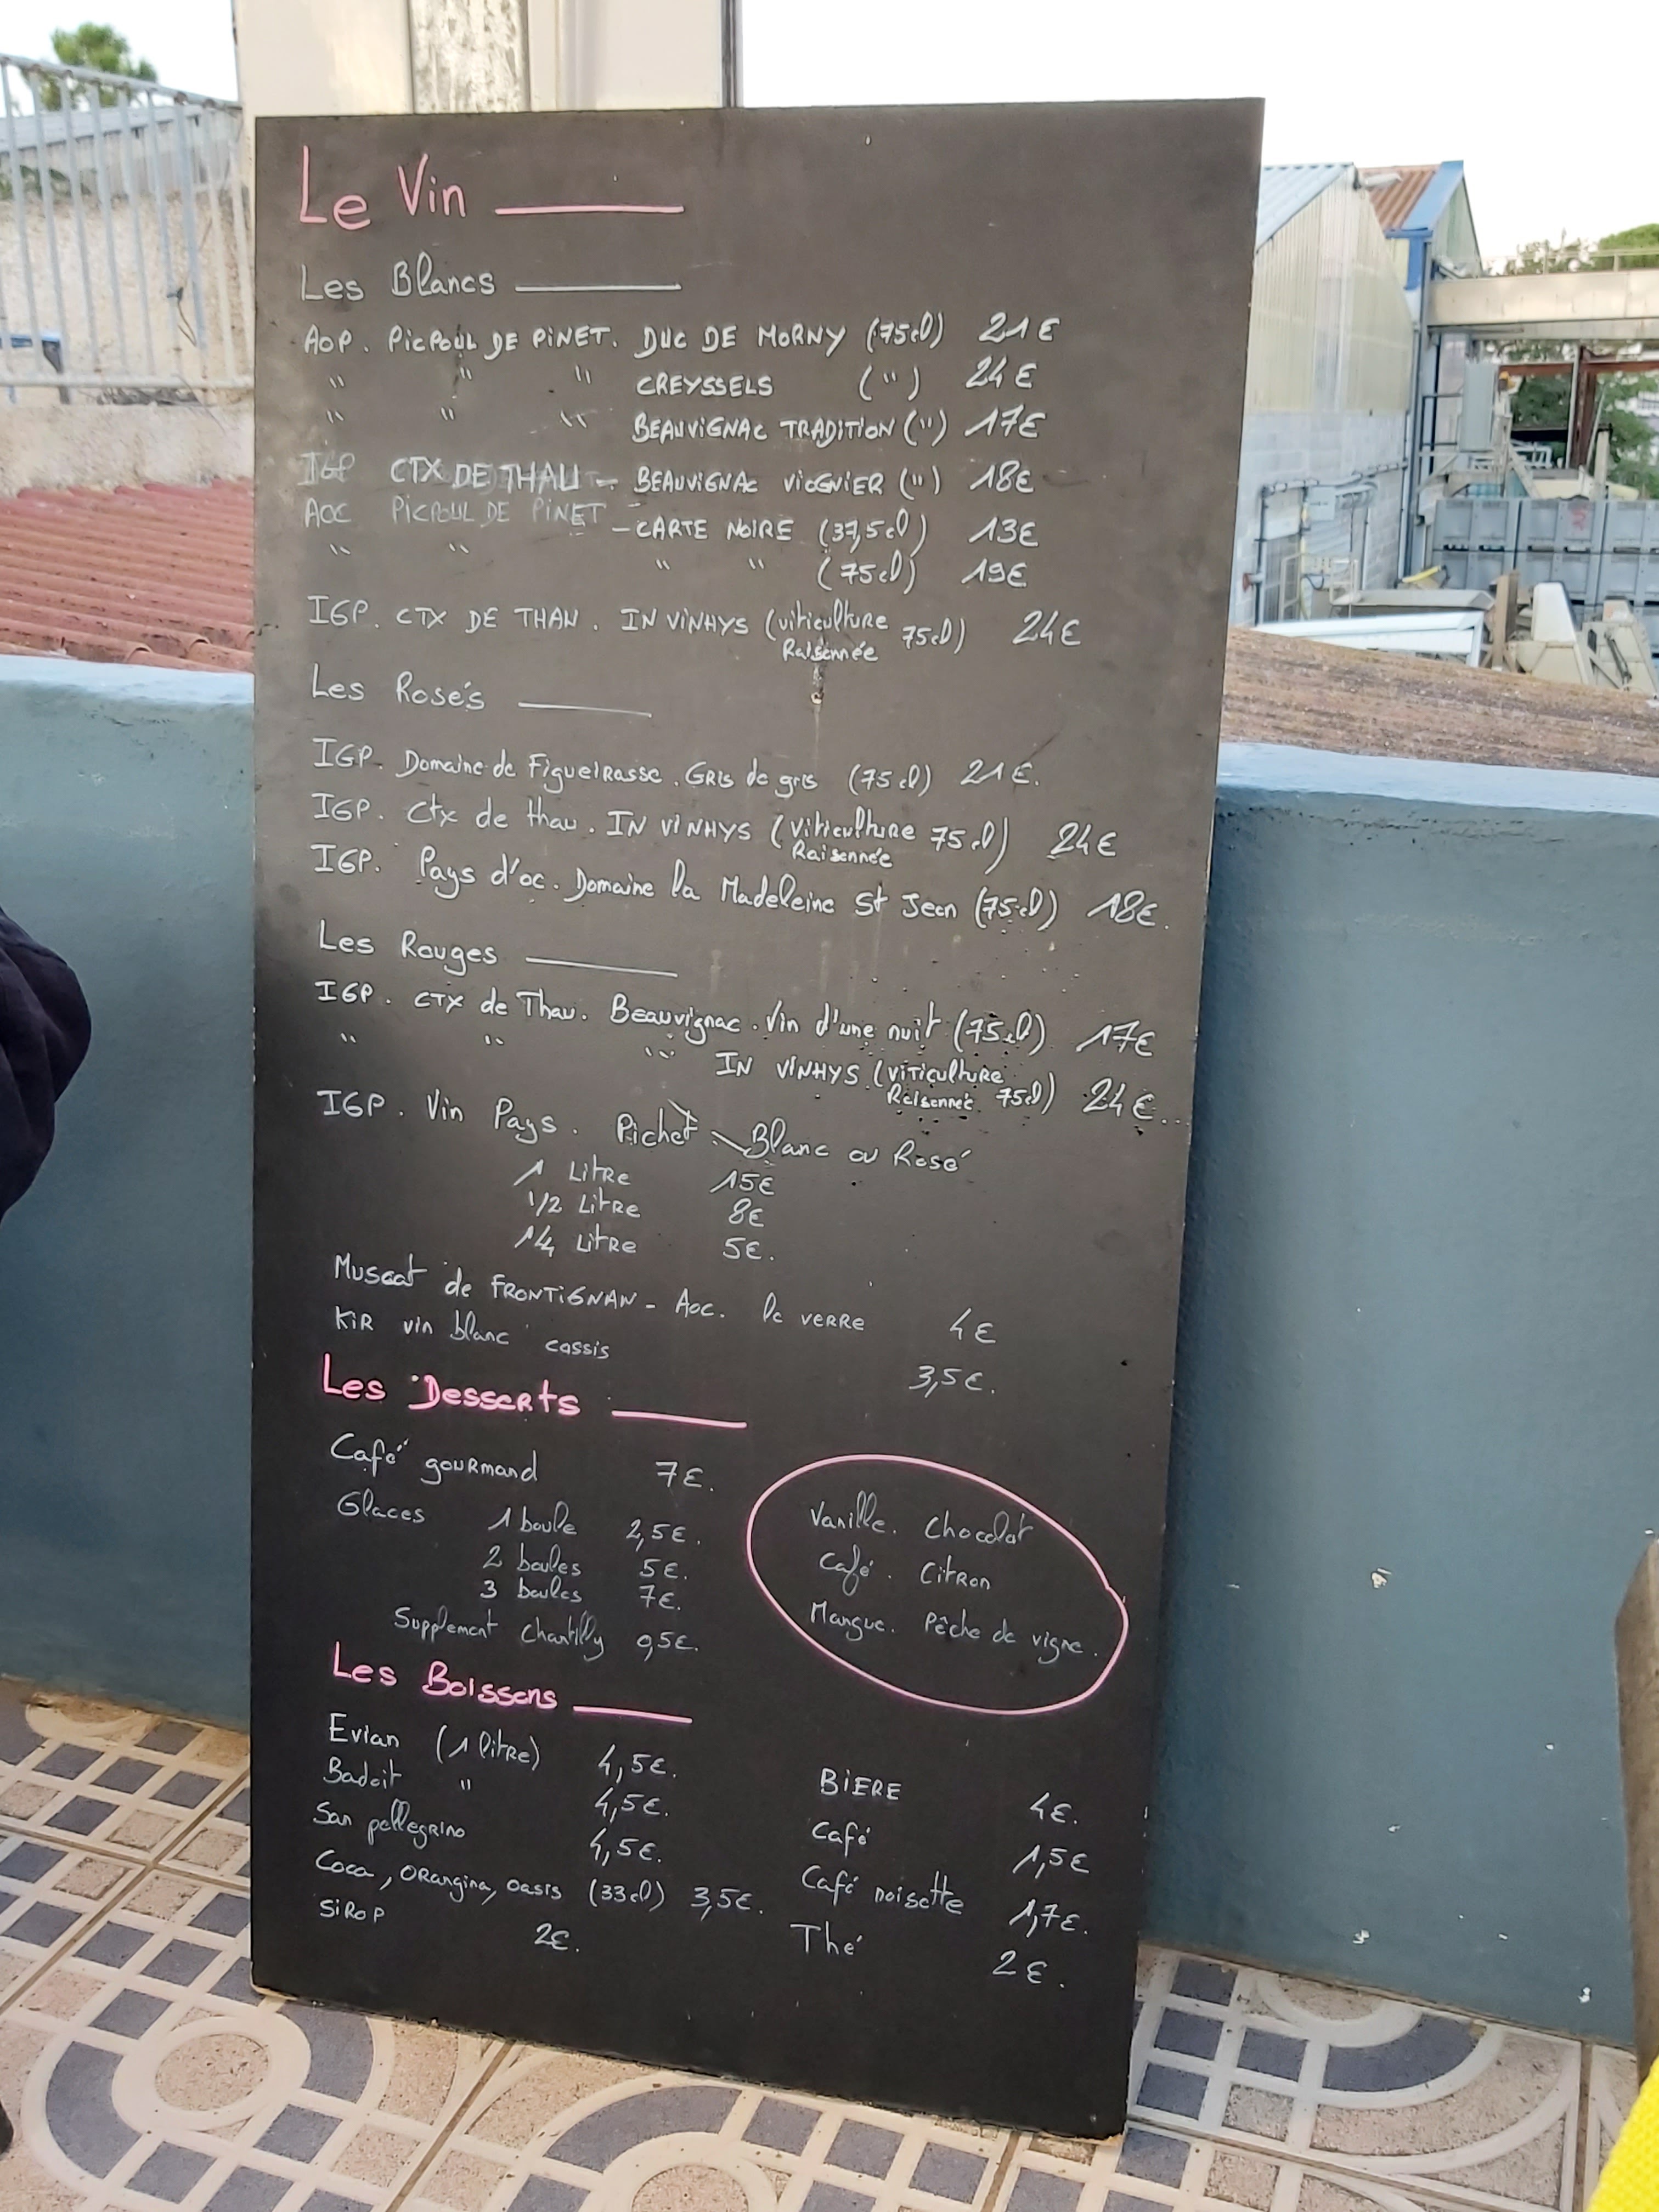 Le Vin
Les Blancs
AOP. PICPOUL DE PINET. DUC DE MORNY (75cl) 21€
" " " CREYSSELS (") 24€
" " " BEAUVIGNAC TRADITION (") 17€
IGP CTX DE THAU - BEAUVIGNAC VIOGNIER (") 18€
AOC PICPOUL DE PINET - CARTE NOIRE (37,5cl) 13€
" " " " (75cl) 19€
IGP. CTX DE THAU. IN VINHYS (viticulture Raisonnée 75cl) 24€
Les Rosés
IGP. Domaine de Figueirasse. Gris de gris (75cl) 21€.
IGP. Ctx de thau. IN VINHYS (Viticulture Raisonnée 75cl) 24€
IGP. Pays d'oc. Domaine la Madeleine St Jean (75cl) 18€.
Les Rouges
IGP. CTX de Thau. Beauvignac. Vin d'une nuit (75cl) 17€
" " " IN VINHYS (Viticulture Raisonnée 75cl) 24€
IGP. Vin Pays. Pichet Blanc ou Rosé
1 Litre 15€
1/2 Litre 8€
1/4 Litre 5€.
Muscat de FRONTIGNAN - AOC. le verre 4€
KIR vin blanc cassis 3,5€.
Les Desserts
Café gourmand 7€.
Glaces 1 boule 2,5€.
2 boules 5€.
3 boules 7€.
Supplement Chantilly 0,5€.
Vanille. Chocolat
Café. Citron
Mangue. Pêche de vigne.
Les Boissons
Evian (1 litre) 4,5€.
Badoit " 4,5€.
San pellegrino 4,5€.
Coca, Orangina, Oasis (33cl) 3,5€.
SIROP 2€.
BIERE 4€.
Café 1,5€
Café noisette 1,7€.
Thé 2€.